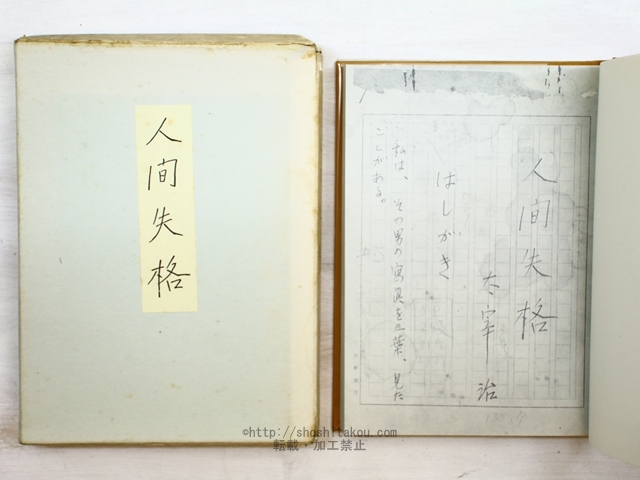 人間失格
人間失格
太宰治
はしがき
私は、その男の寫眞を三葉、見た
ことがある。
©http://shoshitakou.com
転載・加工禁止